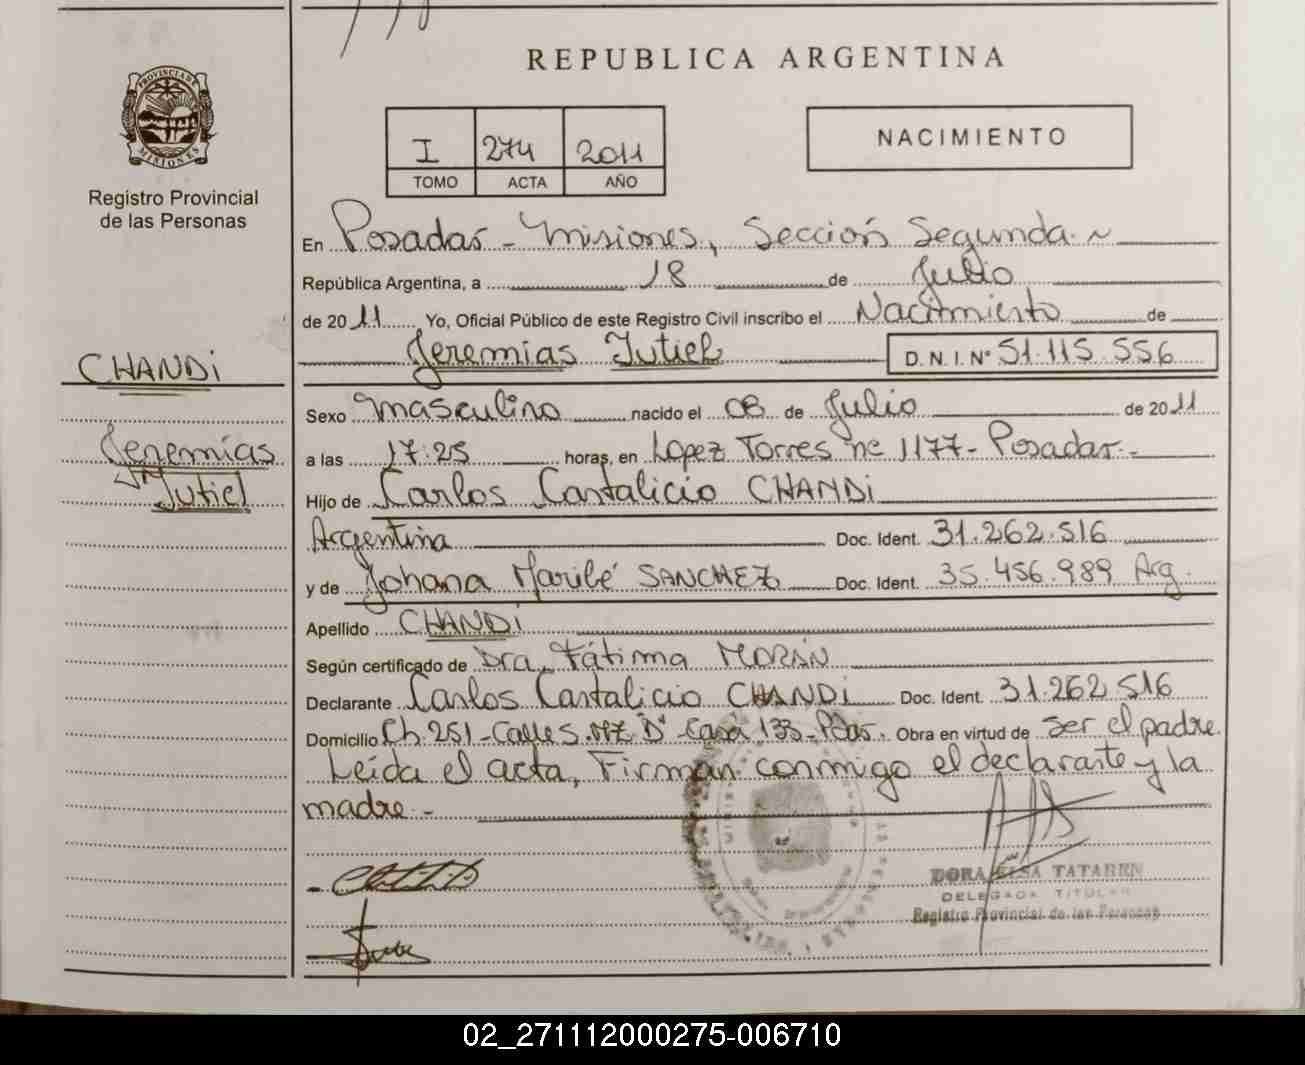 REPUBLICA ARGENTINA
PROVINCIA DE MISIONES
Registro Provincial
de las Personas
I 274 2011
TOMO ACTA AÑO
NACIMIENTO
En Posadas - Misiones, Sección Segunda
República Argentina, a 18 de Julio
de 2011 Yo, Oficial Público de este Registro Civil inscribo el Nacimiento de
Jeremías Jutiel D. N. I. Nº 51.115.556
CHANDi
Jeremías
Jutiel
Sexo masculino nacido el 08 de Julio de 2011
a las 17:25 horas, en Lopez Torres nº 1177- Posadas.-
Hijo de Carlos Cantalicio CHANDi
Argentina Doc. Ident. 31.262.516
y de Johana Maribé SANCHEZ Doc. Ident. 35.456.989 Arg.
Apellido CHANDi
Según certificado de Dra. Fátima MORÁN
Declarante Carlos Cantalicio CHANDi Doc. Ident. 31.262.516
Domicilio Ch. 251- Calle S. MZ D- Casa 133- Pdas. Obra en virtud de ser el padre.
Leída el acta, Firman conmigo el declarante y la
madre.-
DORA ELSA TATAREN
DELEGADA TITULAR
Registro Provincial de las Personas
02_271112000275-006710